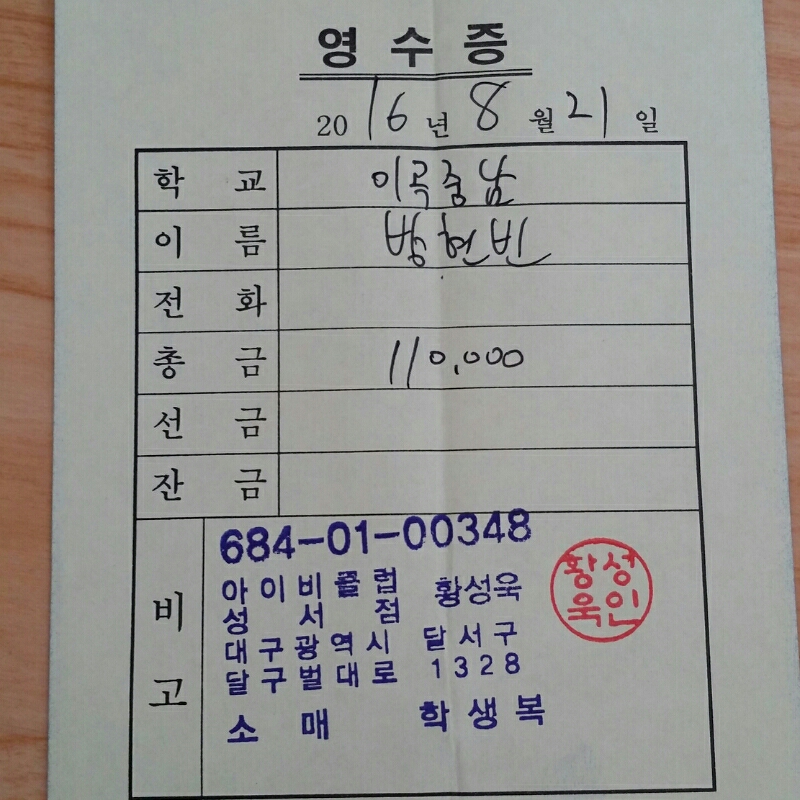 영 수 증
2016년 8월 21일
학 교 이곡중남
이 름 방현빈
전 화
총 금 110,000
선 금
잔 금
비 고
684-01-00348
아이비클럽 황성욱
성 서 점
대구광역시 달서구
달구벌대로 1328
소 매 학생복
황성
욱인